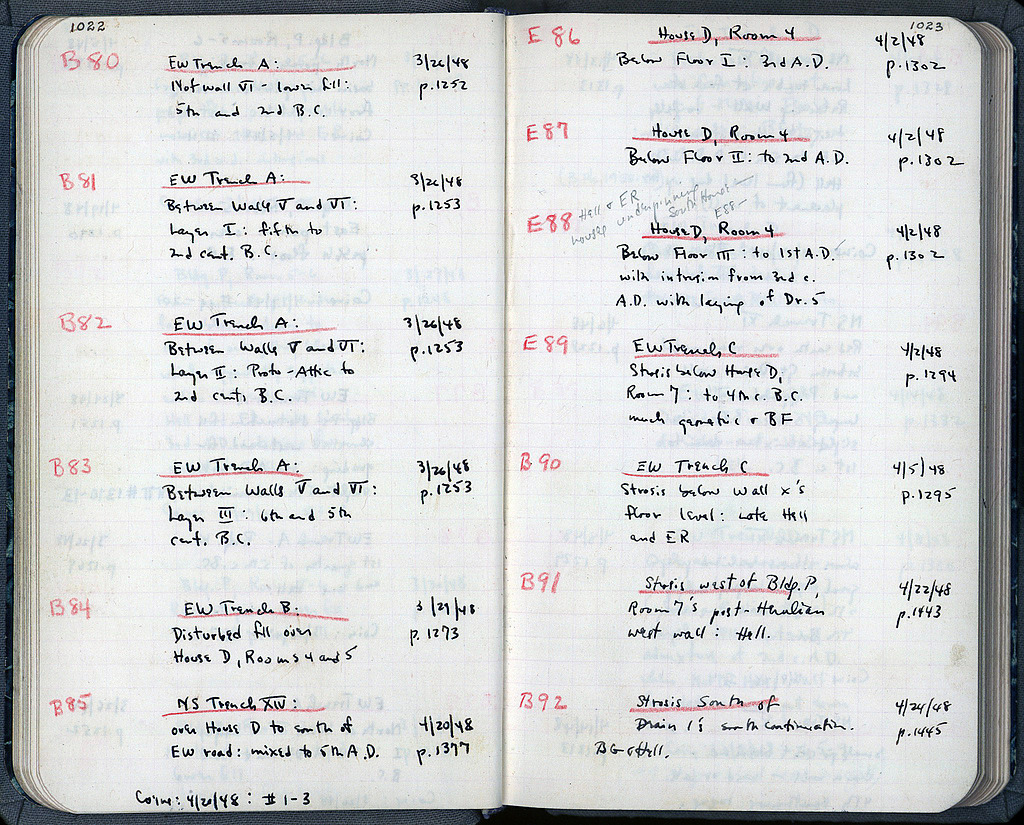 1022
B 80
EW Trench A: 3/26/48
N of wall VI - lower fill: p.1252
5th and 2nd B.C.
B81
EW Trench A: 3/26/48
Between Walls V and VI: p.1253
Layer I: fifth to
2nd cent. B.C.
B82
EW Trench A: 3/26/48
Between Walls V and VI: p.1253
Layer II: Proto-Attic to
2nd cent. B.C.
B83
EW Trench A: 3/26/48
Between Walls V and VI: p.1253
Layer III: 6th and 5th
cent. B.C.
B84
EW Trench B: 3/29/48
Disturbed fill over p.1273
House D, Rooms 4 and 5
B85
NS Trench XIV:
over House D to south of 4/20/48
EW road: mixed to 5th A.D. p.1397
Coins: 4/20/48: # 1-3
1023
E 86 House D, Room 4 4/2/48
Below Floor I: 3rd A.D. p.1302
E87 House D, Room 4 4/2/48
Below Floor II: to 2nd A.D. p.1302
Hell & ER
houses underpinning South House
E88-
E88 House D, Room 4 4/2/48
Below Floor III: to 1st A.D. p.1302
with intrusion from 3rd c.
A.D. with laying of Dr. 5
E 89 EW Trench C 4/2/48
Strosis below House D, p.1294
Room 7: to 4th c. B.C.
much geometric & BF
B 90 EW Trench C 4/5/48
Strosis below Wall X's p.1295
floor level: Late Hell
and ER
B91 Strosis west of Bldg. P, 4/22/48
Room 7's post-Herulian p.1443
west wall: Hell.
B92 Strosis South of 4/24/48
Drain 1's south continuation. p.1445
BG & Hell.